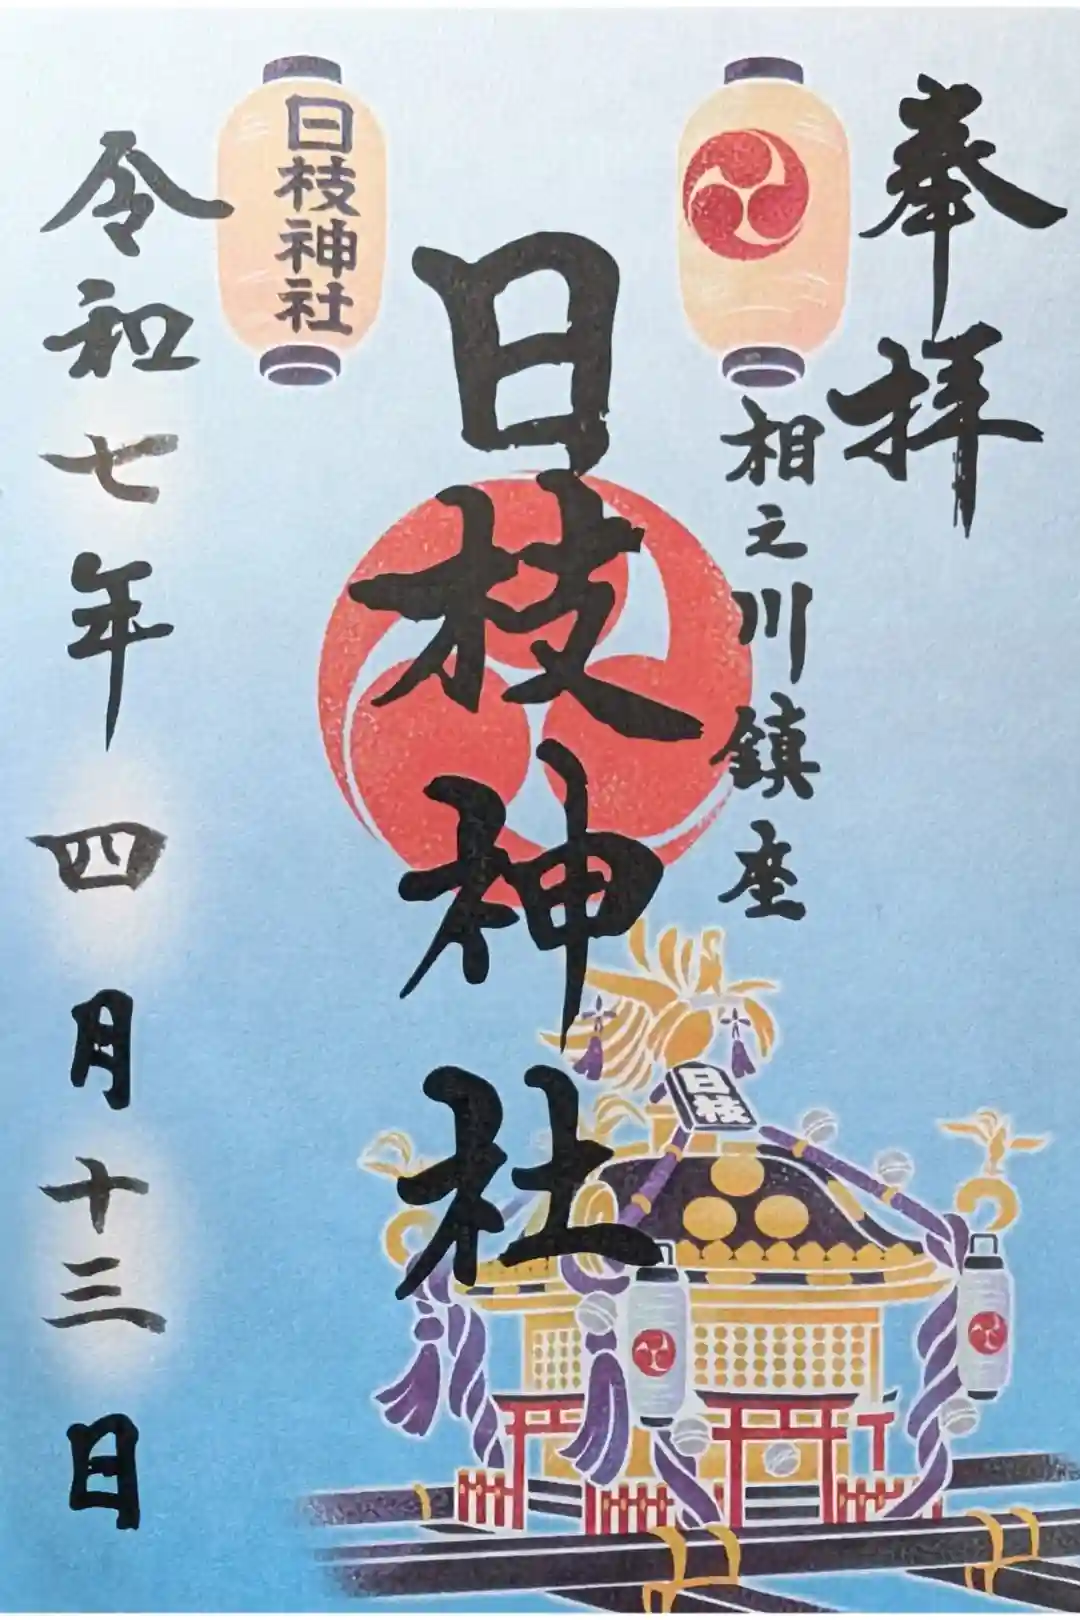 奉拝
相之川鎮座
日枝神社
日枝神社
令和七年四月十三日
日枝